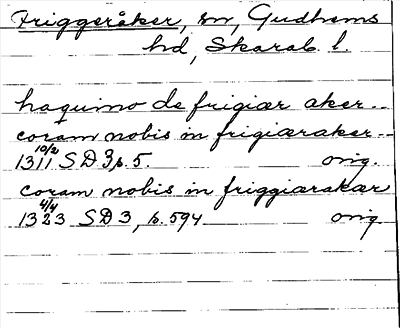 Friggeråker, sn, Gudhems
hd, Skarab. l.
haquino de frigiær aker --
coram nobis in frigiæraker --
1311 10/2 SD 3, p. 5. orig.
coram nobis in friggiærakær
1323 4/4 SD 3, p. 594 orig